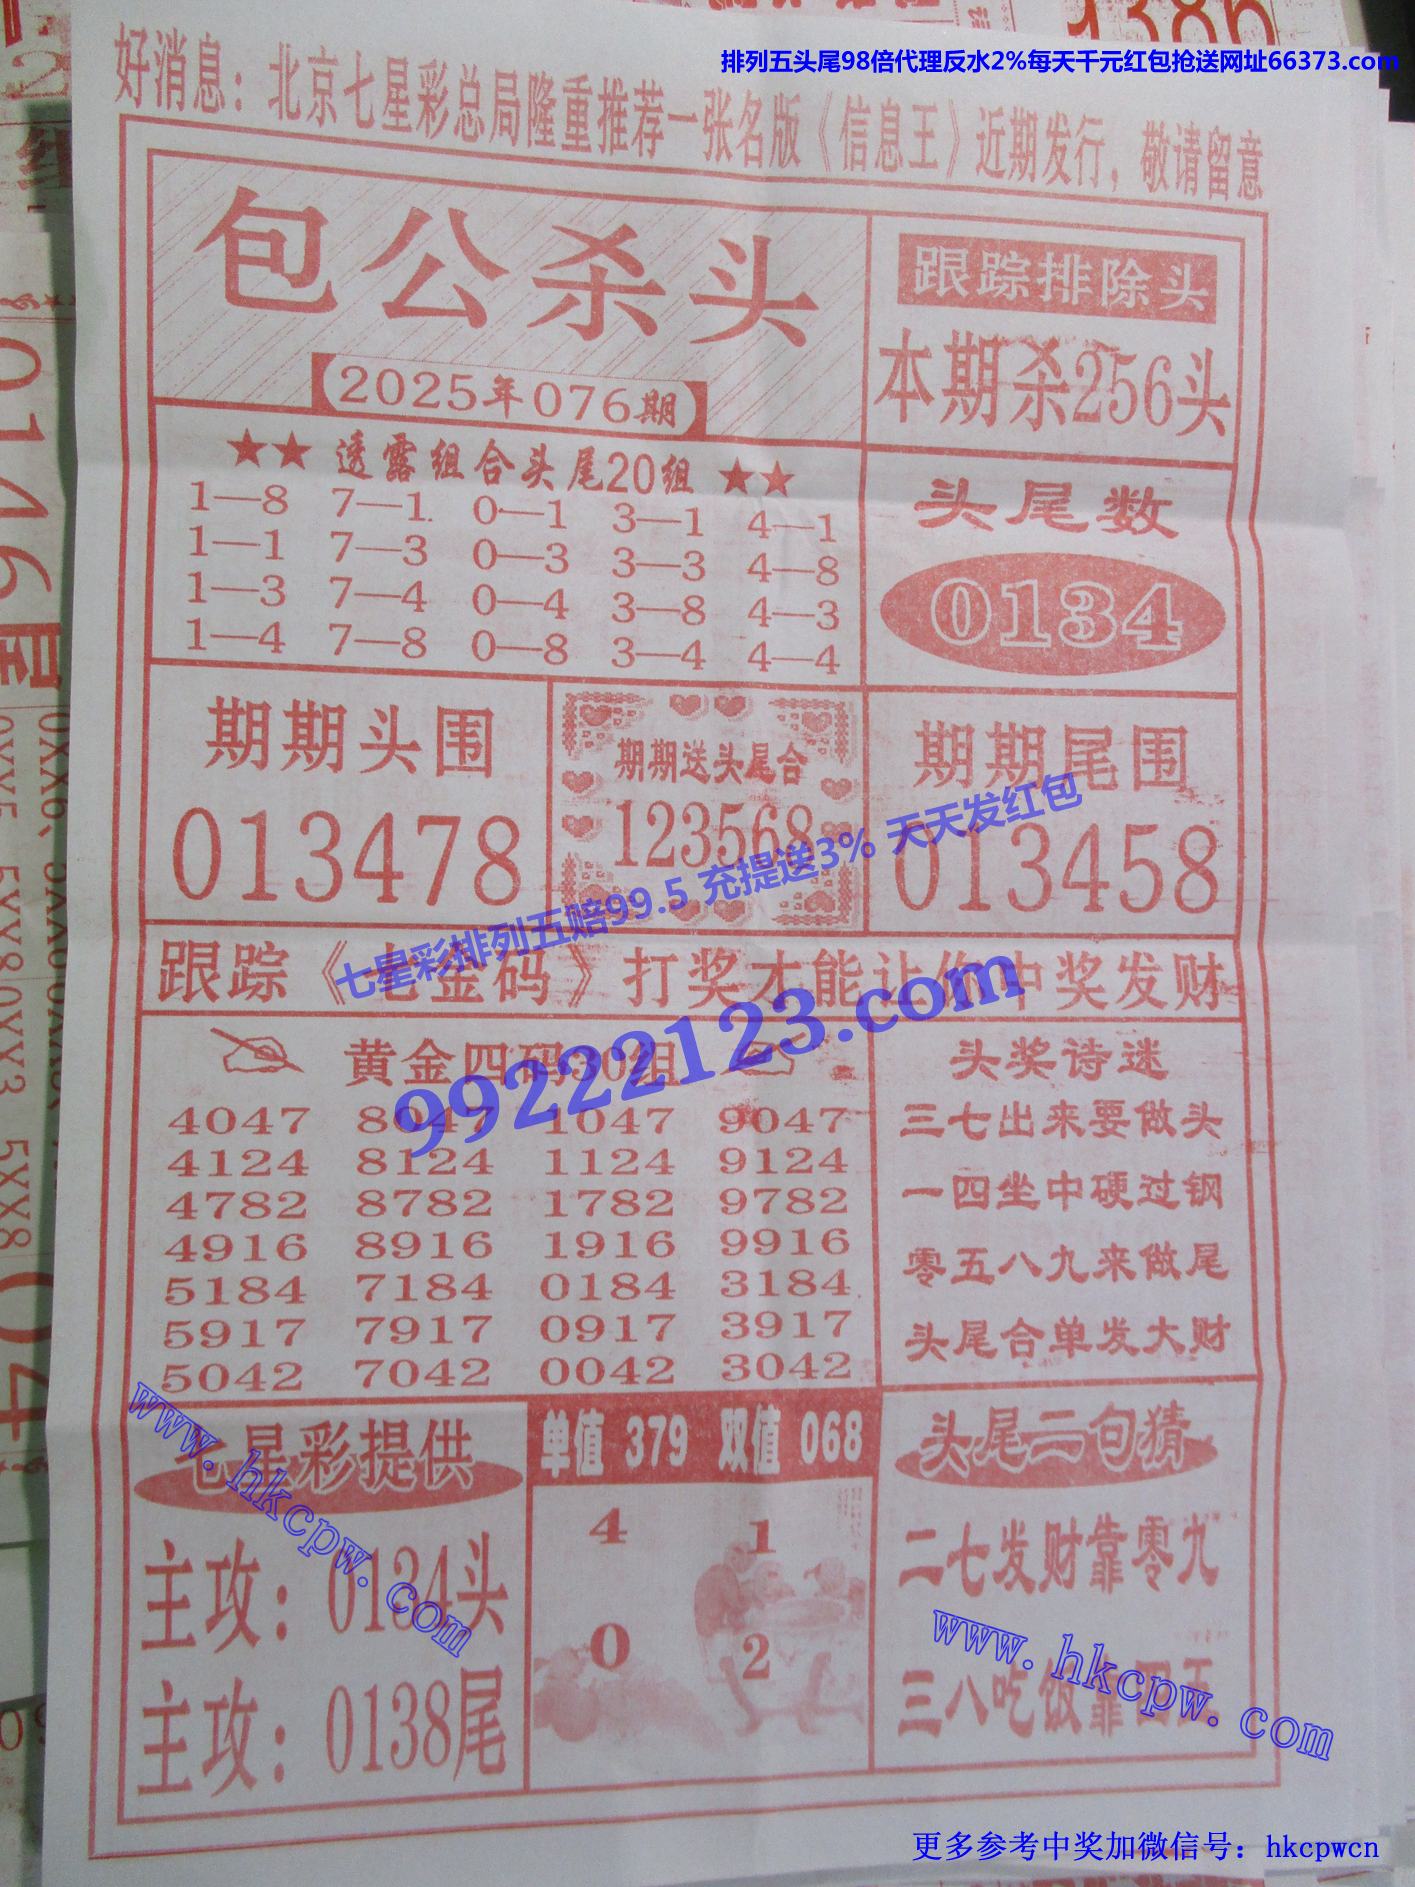 排列五头尾98倍代理反水2%每天千元红包抢送网址66373.com
好消息：北京七星彩总局隆重推荐一张名版《信息王》近期发行，敬请留意
包公杀头
2025年076期
跟踪排除头
本期杀256头
★★ 透露组合头尾20组 ★★
1—8 7—1 0—1 3—1 4—1
1—1 7—3 0—3 3—3 4—8
1—3 7—4 0—4 3—8 4—3
1—4 7—8 0—8 3—4 4—4
头尾数
0134
期期头围
013478
期期送头尾合
123568
期期尾围
013458
七星彩排列五赔99.5 充提送3% 天天发红包
99222123.com
跟踪《老金码》打奖才能让你中奖发财
黄金四码30组
4047 8047 1047 9047
4124 8124 1124 9124
4782 8782 1782 9782
4916 8916 1916 9916
5184 7184 0184 3184
5917 7917 0917 3917
5042 7042 0042 3042
头奖诗迷
三七出来要做头
一四坐中硬过钢
零五八九来做尾
头尾合单发大财
七星彩提供
主攻：0134头
主攻：0138尾
www.hkcpw.com
单值 379 双值 068
4 1
0 2
头尾二句猜
二七发财靠零九
三八吃饭靠四五
www.hkcpw.com
更多参考中奖加微信号：hkcpwcn
0146星